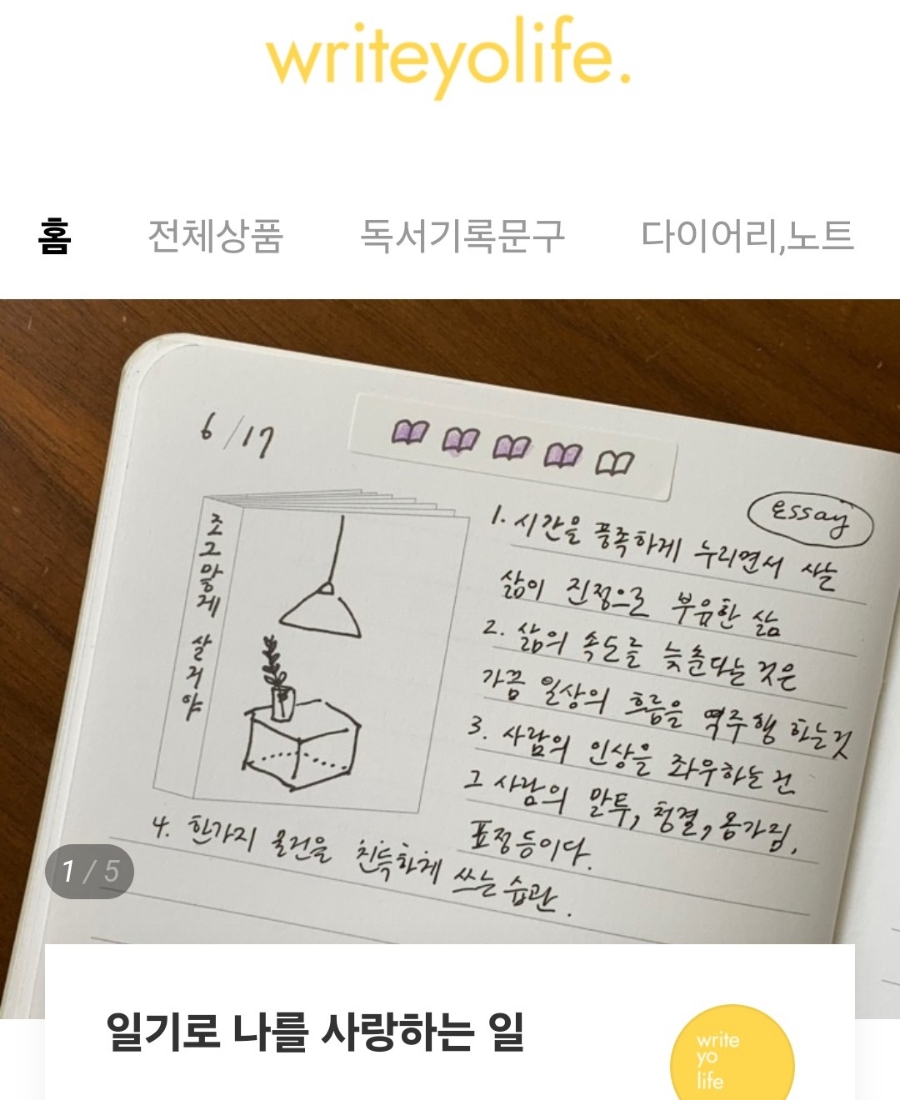 writeyolife.
홈 전체상품 독서기록문구 다이어리,노트
6/17
Essay
조그맣게 살거야
1. 시간을 풍족하게 누리면서 사는
삶이 진정으로 부유한 삶
2. 삶의 속도를 늦춘다는 것은
가끔 일상의 흐름을 역주행 하는것
3. 사람의 인상을 좌우하는 건
그 사람의 말투, 청결, 몸가짐,
표정 등이다.
4. 한가지 물건을 진득하게 쓰는 습관.
1 / 5
일기로 나를 사랑하는 일
write
yo
life